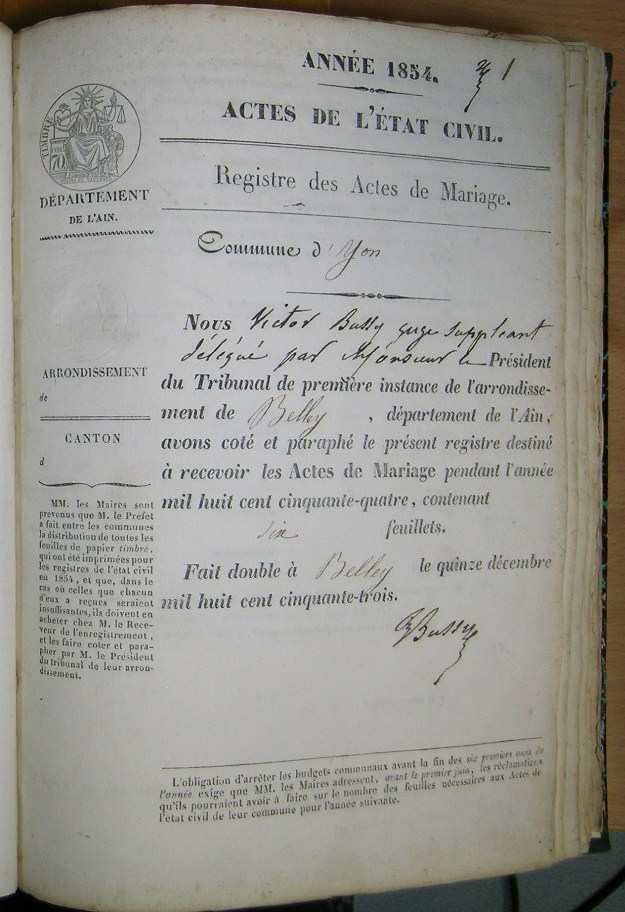 ANNÉE 1854.
1
ACTES DE L'ÉTAT CIVIL.
Registre des Actes de Mariage.
TIMBRE
70
DÉPARTEMENT
DE L'AIN.
Commune d'Yon
Nous Victor Bussy juge suppléant
délégué par Monsieur le Président
du Tribunal de première instance de l'arrondisse-
ment de Belley, département de l'Ain,
avons coté et paraphé le présent registre destiné
à recevoir les Actes de Mariage pendant l'année
mil huit cent cinquante-quatre, contenant
six feuillets.
Fait double à Belley le quinze décembre
mil huit cent cinquante-trois.
Bussy
ARRONDISSEMENT
de
CANTON
d
MM. les Maires sont
prévenus que M. le Préfet
a fait entre les communes
la distribution de toutes les
feuilles de papier timbré,
qui ont été imprimées pour
les registres de l'état civil
en 1854, et que, dans le
cas où celles que chacun
d'eux a reçues seraient
insuffisantes, ils doivent en
acheter chez M. le Rece-
veur de l'enregistrement,
et les faire coter et para-
pher par M. le Président
du tribunal de leur arron-
dissement.
L'obligation d'arrêter les budgets communaux avant la fin des six premiers mois de
l'année exige que MM. les Maires adressent, avant le premier juin, les réclamations
qu'ils pourraient avoir à faire sur le nombre des feuilles nécessaires aux Actes de
l'état civil de leur commune pour l'année suivante.